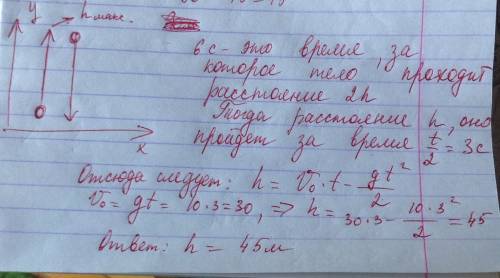 y
h макс.
x
6с - это время, за
которое тело проходит
расстояние 2h
Тогда расстояние h, оно
пройдет за время t/2 = 3с
Отсюда следует: h = V₀·t - gt²/2
V₀ = gt = 10·3=30, => h = 30·3 - 10·3²/2 = 45
Ответ: h = 45м